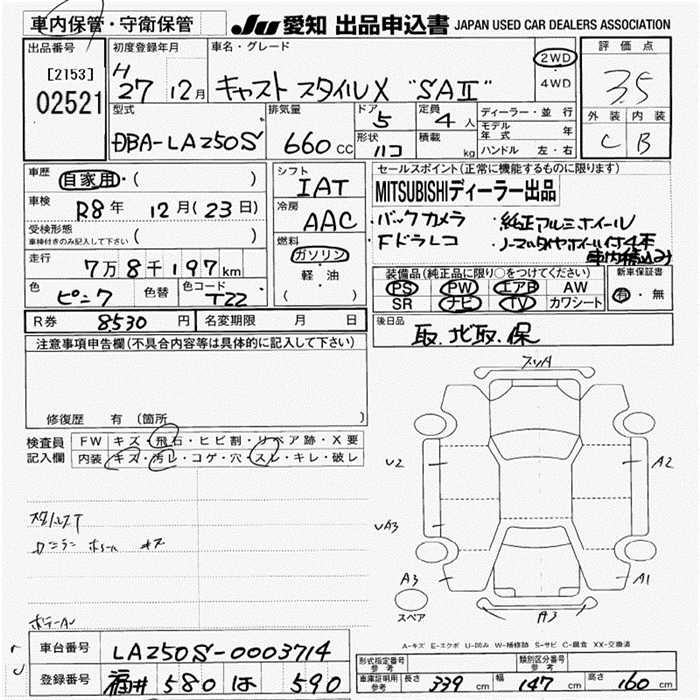 車内保管・守衛保管 JU 愛知 出品申込書 JAPAN USED CAR DEALERS ASSOCIATION
出品番号 初度登録年月 車名・グレード 評価点
[2153] H 27 12月 キャスト スタイルX "SAⅡ" 2WD ・4WD 3.5
02521 外装 内装
型式 排気量 ドア 定員 ディーラー・並行 C B
DBA-LA250S 660cc 5 4人 モデル年式 年
形状 ハコ 積載 kg ハンドル 左・右
車歴 自家用・( ) シフト IAT セールスポイント(正常に機能するものに限ります)
車検 R8年 12月(23日) 冷房 AAC MITSUBISHIディーラー出品
受検形態 ・バックカメラ ・純正アルミホイール
車検付きのみ記入して下さい ( ) 燃料 ・Fドラレコ ・ノーマルタイヤホイール付4本
走行 7万8千197km ガソリン 車内積込み
軽・油 装備品(純正品に限り○をつけてください) 新車保証書
色 ピンク 色替 色コード T22 ( ) PS PW エアB AW 有・無
SR ナビ TV カワシート
R券 8530円 名変期限 月 日 後日品
取.北取.保
注意事項申告欄(不具合内容等は具体的に記入して下さい)
修復歴 有(箇所 )
検査員 FW キズ・飛石・ヒビ割・リペア跡・X要
記入欄 内装 キズ・汚レ・コゲ・穴・スレ・キレ・破レ
スリA
U2 A2
UA3
A3 A1
スペア A3
A-キズ E-エクボ U-凹み W-補修跡 S-サビ C-腐食 XX-交換済
車台番号 LA250S-0003714
登録番号 福井 580 ほ 590
形式指定番号 参考 類別区分番号 参考
車庫証明用 参考 長さ 339cm 幅 147cm 高さ 160cm